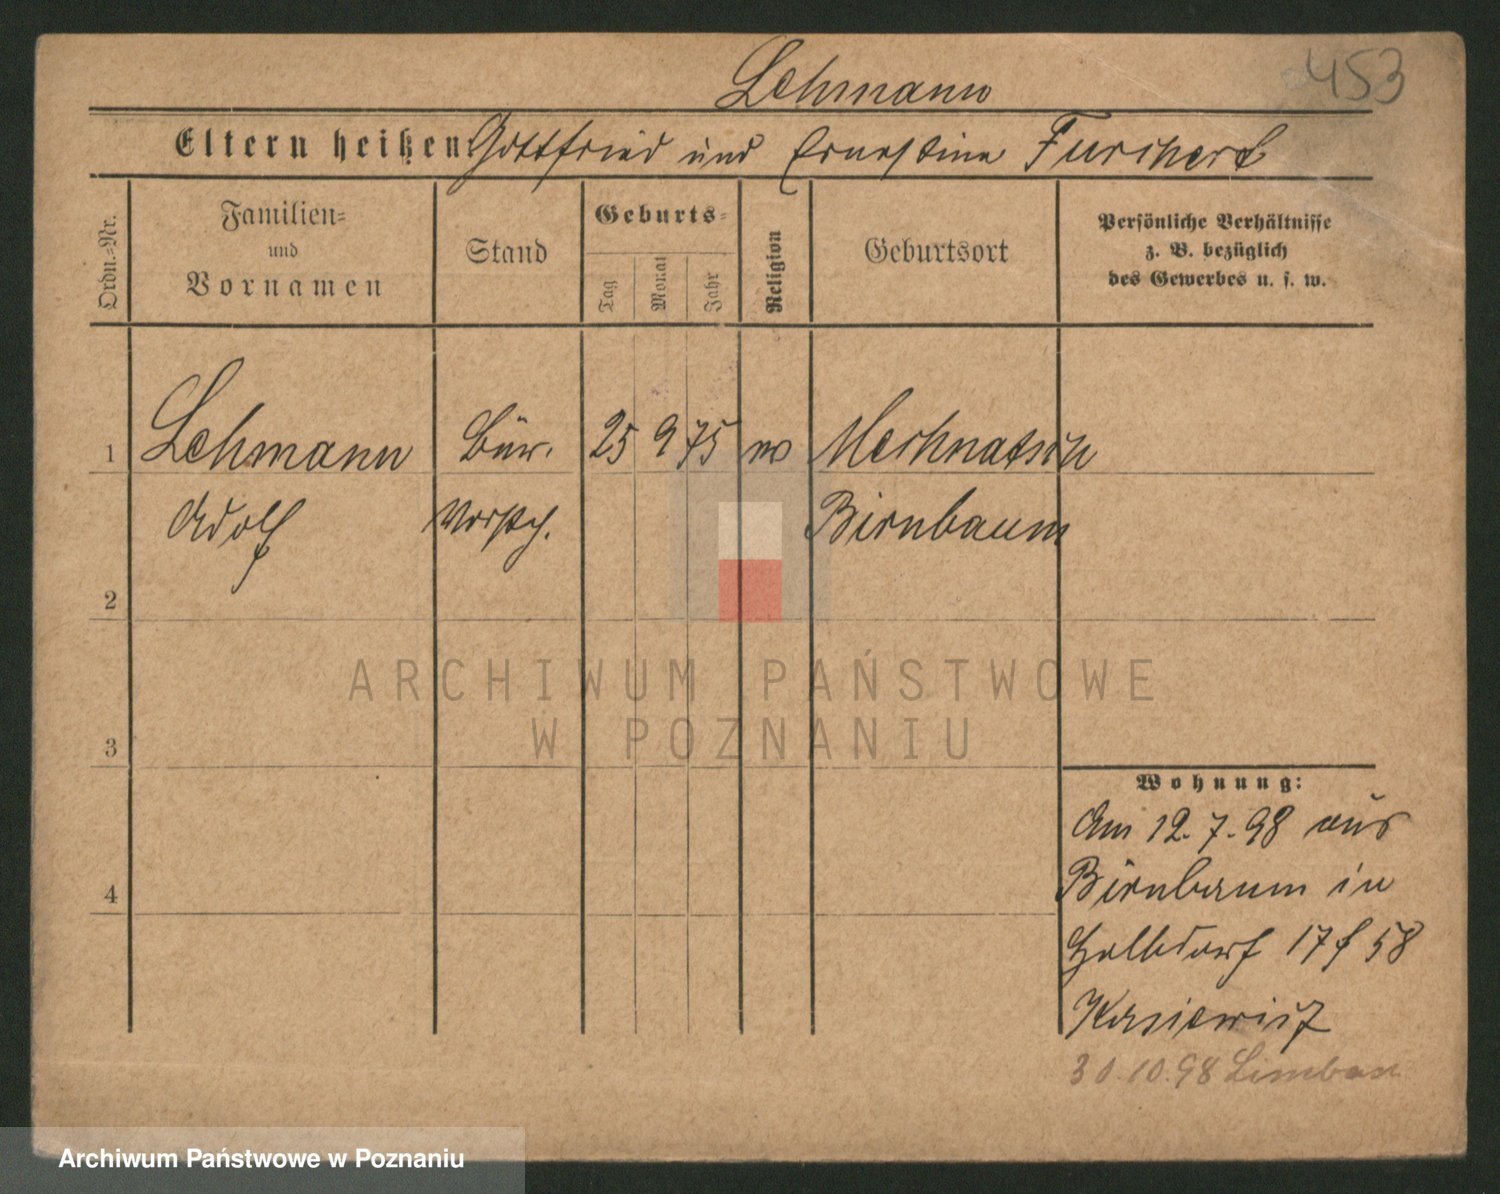 453
Lehmann
Eltern heißen: Gottfried und Ernestine Furchert
Ordn.=Nr.
Familien= und Vornamen
Stand
Geburts=
Tag
Monat
Jahr
Religion
Geburtsort
Persönliche Verhältnisse
z. B. bezüglich
des Gewerbes u. s. w.
1 Lehmann Bür. 25 9 75 ev Merknatsch
Adolf Vorst. Birnbaum
2
3
4
Wohnung:
Am 12.7.98 aus
Birnbaum in
Halbdorf 17 f 58
30.10.98
ARCHIWUM PAŃSTWOWE
W POZNANIU
Archiwum Państwowe w Poznaniu